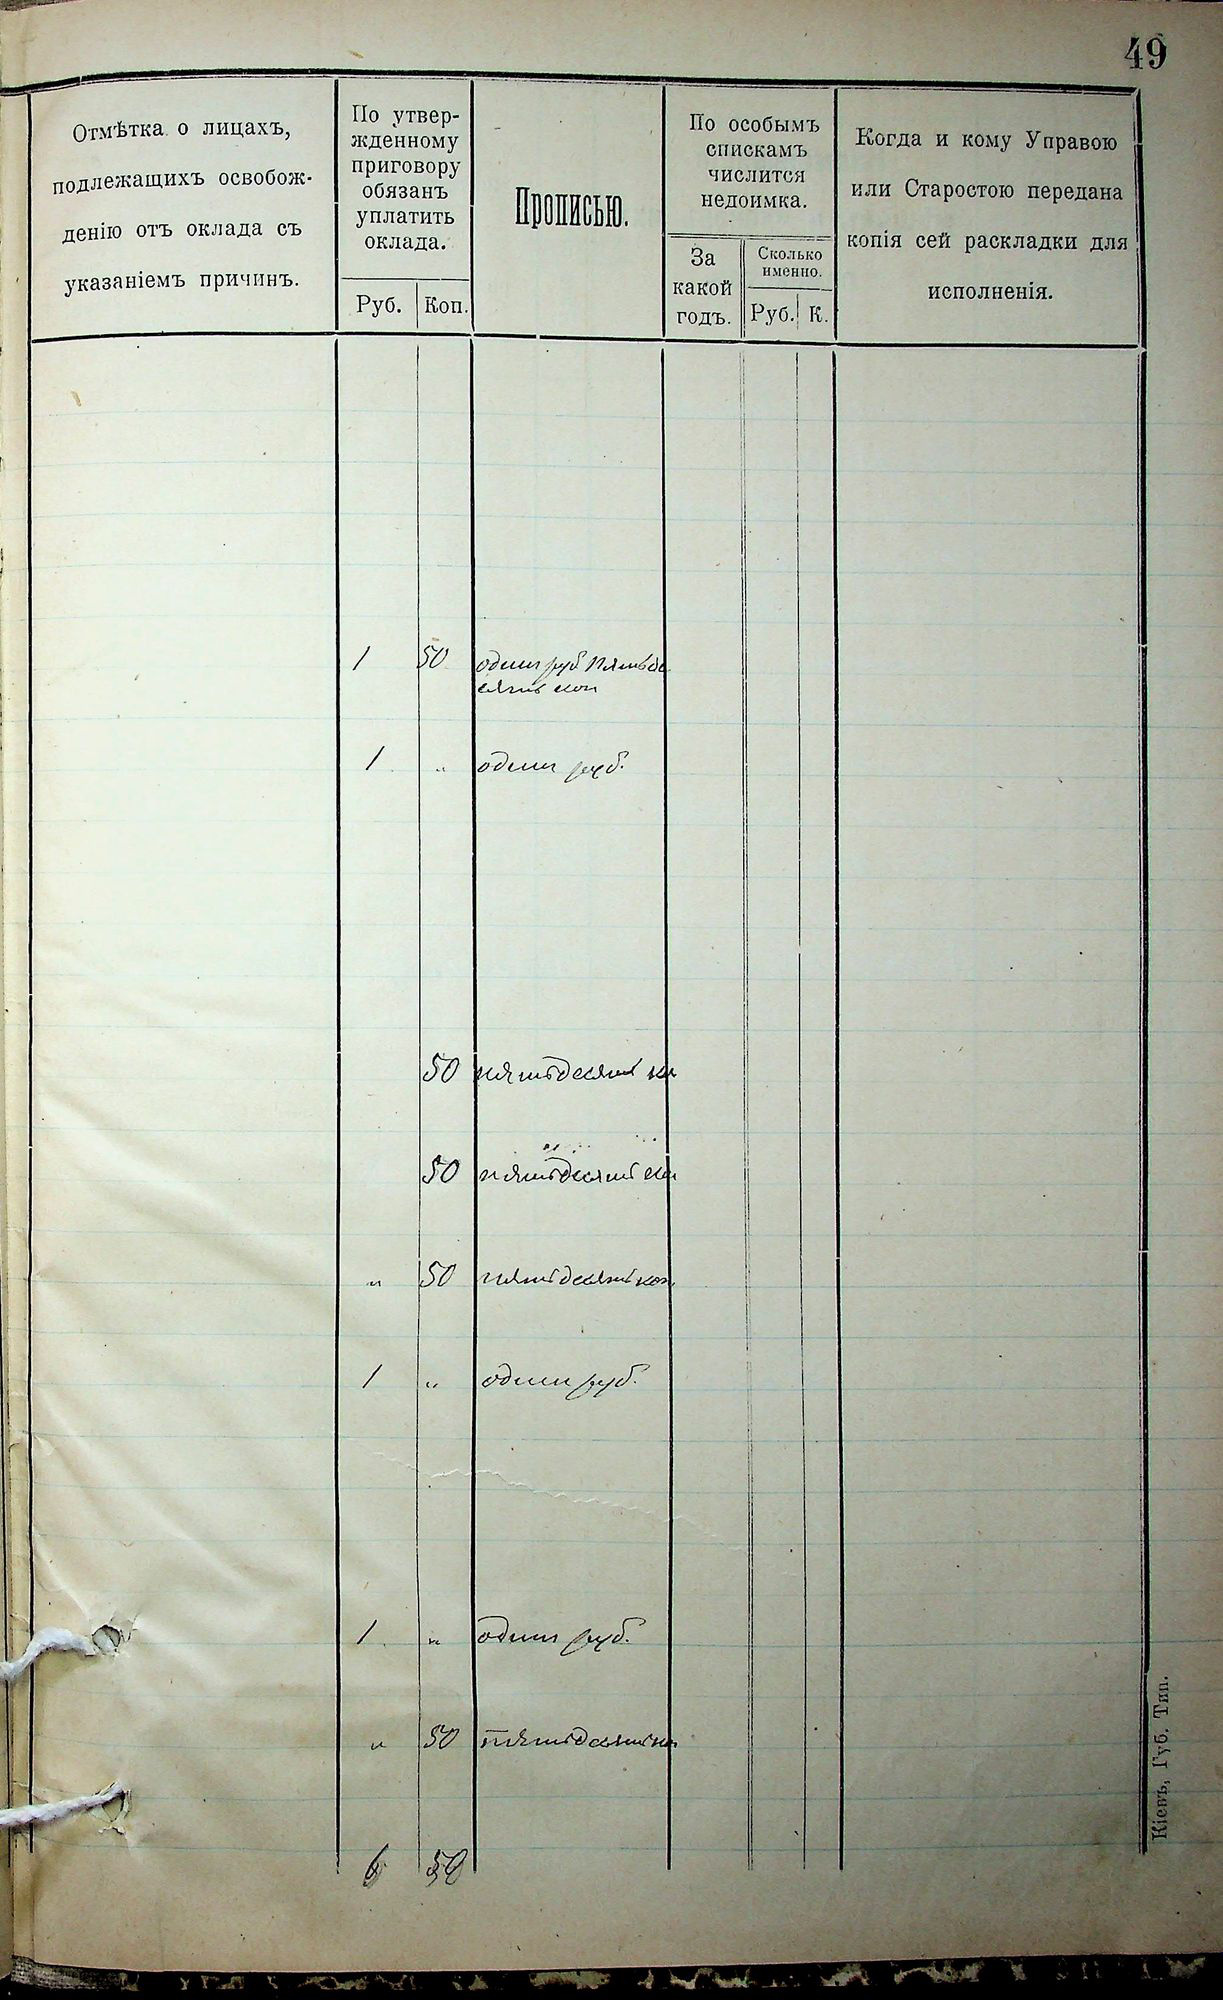 49
Отмѣтка о лицахъ,
подлежащихъ освобож-
денію отъ оклада съ
указаніемъ причинъ.
По утвер-
жденному
приговору
обязанъ
уплатить
оклада.
Руб. Коп.
Прописью.
По особымъ
спискамъ
числится
недоимка.
За
какой
годъ.
Сколько
именно.
Руб. К.
Когда и кому Управою
или Старостою передана
копія сей раскладки для
исполненія.
1 50 один руб пятьде
сять коп
1 „ один руб.
50 пятьдесят ко
50 пятьдесят ко
„ 50 пятьдесят коп
1 „ один руб.
1 „ один руб.
„ 50 пятьдесят ко
6 50
Кіевъ, Губ. Тип.